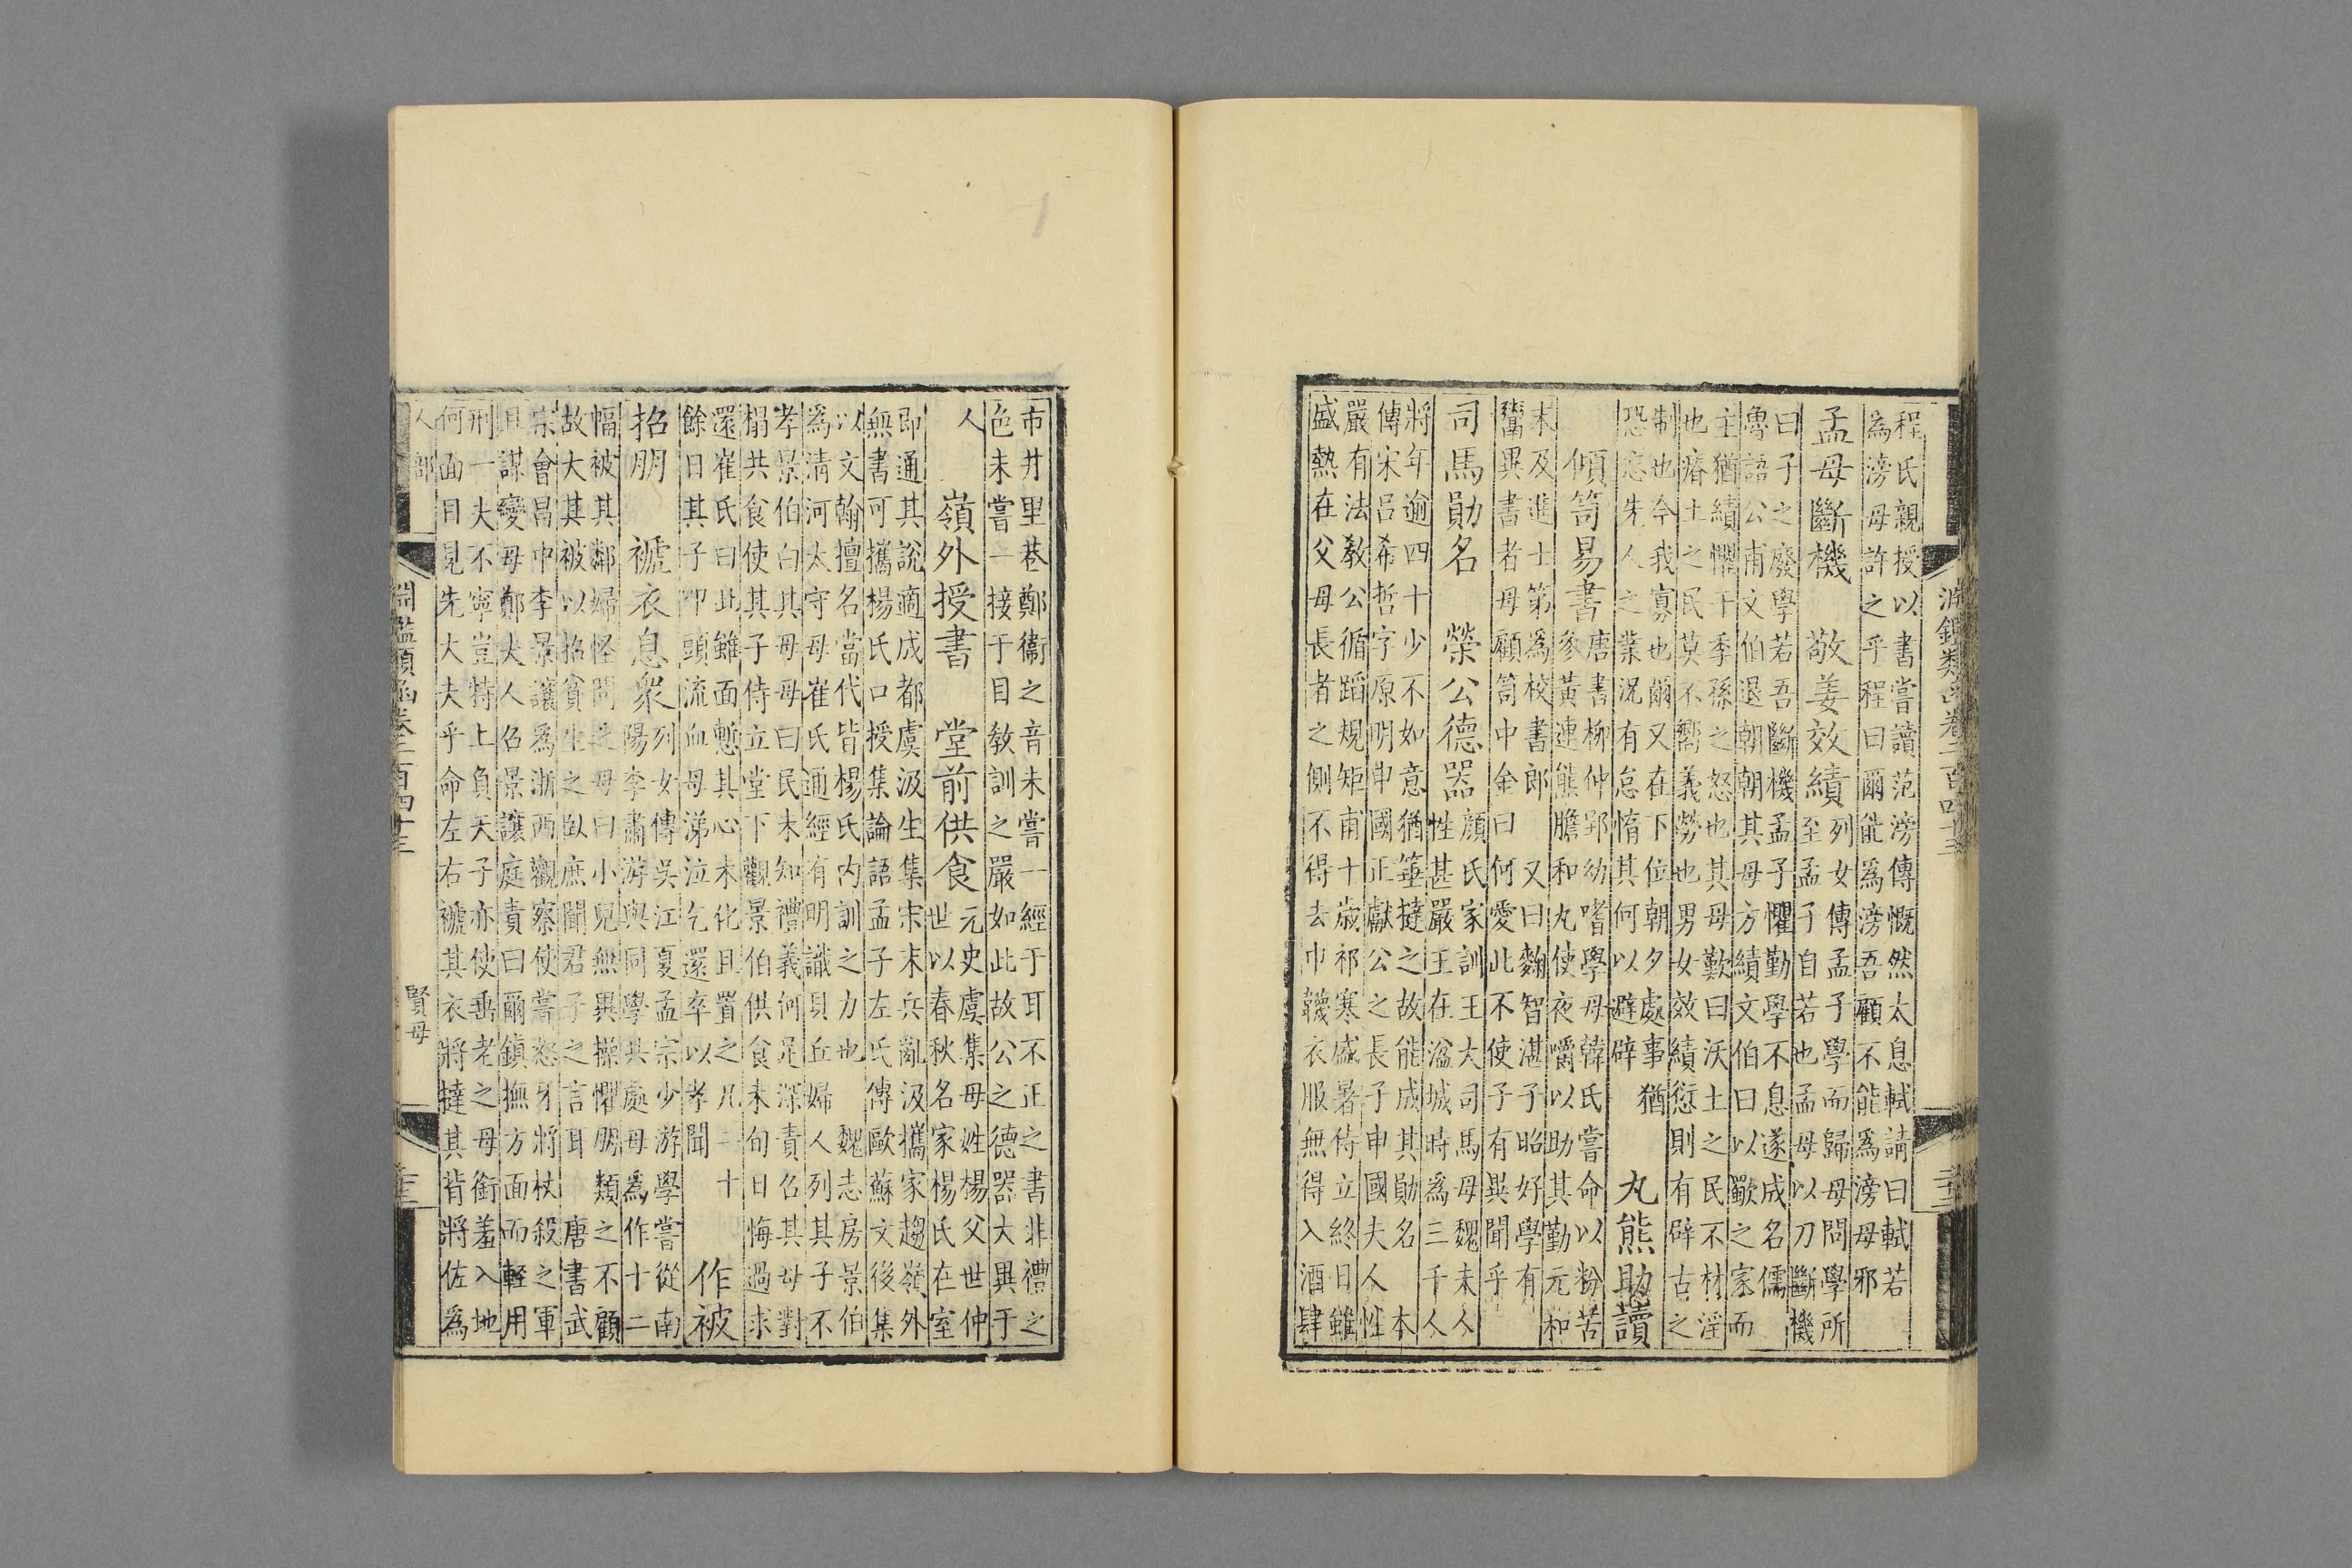 淵鑑類函卷二百四十三
程氏親授以書嘗讀范滂傳慨然太息軾請曰軾若
為滂母許之乎程曰爾能為滂吾顧不能為滂母邪
孟母斷機 敬姜效績
列女傳孟子學而歸母問學所
至孟子自若也孟母以刀斷機
曰子之廢學若吾斷機孟子懼勤學不息遂成名儒
魯語公甫文伯退朝朝其母方績文伯曰以歜之家而
主猶績懼干季孫之怒也其母歎曰沃土之民不材淫
也瘠土之民莫不嚮義勞也男女效績愆則有辟古之
制也今我寡也爾又在下位朝夕處事猶
恐忘先人之業況有怠惰其何以避辟
丸熊助讀
傾笥易書
唐書柳仲郢幼嗜學母韓氏嘗命以粉苦
參黃連熊膽和丸使夜嚼以助其勤元和
末及進士第為校書郎 又曰麴智湛子昭好學有
鬻異書者母顧笥中金曰何愛此不使子有異聞乎
司馬勛名 榮公德器
顏氏家訓王大司馬母魏夫人
性甚嚴王在湓城時為三千人
將年逾四十少不如意猶箠撻之故能成其勛名 本
傳宋呂希哲字原明申國正獻公之長子申國夫人性
嚴有法教公循蹈規矩甫十歲祁寒盛暑侍立終日雖
盛熱在父母長者之側不得去巾襪衣服無得入酒肆
市井里巷鄭衞之音未嘗一經于耳不正之書非禮之
色未嘗一接于目教訓之嚴如此故公之德器大異于
人
嶺外授書 堂前供食
元史虞集母姓楊父世仲
世以春秋名家楊氏在室
即通其說適成都虞汲生集宋末兵亂汲攜家趨嶺外
無書可攜楊氏口授集論語孟子左氏傳歐蘇文後集
以文翰擅名當代皆楊氏内訓之力也 魏志房景伯
為清河太守母崔氏通經有明識貝丘婦人列其子不
孝景伯白其母母曰民未知禮義何足深責召其母對
榻共食使其子侍立堂下觀景伯供食未旬日悔過求
還崔氏曰此雖面慙其心未化且置之凡二十
餘日其子叩頭流血母涕泣乞還卒以孝聞
作被
招朋 褫衣息衆
列女傳吳江夏孟宗少游學嘗從南
陽李肅游與同學共處母為作十二
幅被其鄰婦怪問之母曰小兒無異操懼朋類之不顧
故大其被以招貧生之臥庶聞君子之言耳 唐書武
宗會昌中李景讓為浙西觀察使嘗怒牙將杖殺之軍
且謀變母鄭夫人召景讓庭責曰爾鎮撫方面而輕用
刑一夫不寧豈特上負天子亦使垂老之母銜羞入地
何面目見先大夫乎命左右褫其衣將撻其背將佐為
人部
淵鑑類函卷二百四十三
賢母